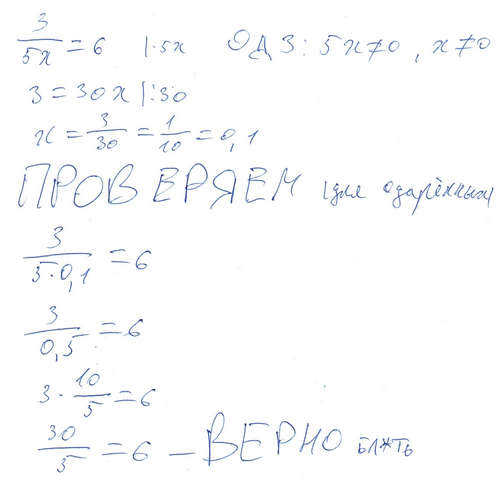 3/5x = 6 |·5x ОДЗ: 5x≠0, x≠0
3 = 30x |:30
x = 3/30 = 1/10 = 0,1
ПРОВЕРЯЕМ (для одарённых)
3/5·0,1 = 6
3/0,5 = 6
3·10/5 = 6
30/5 = 6 – ВЕРНО БЛ*ТЬ